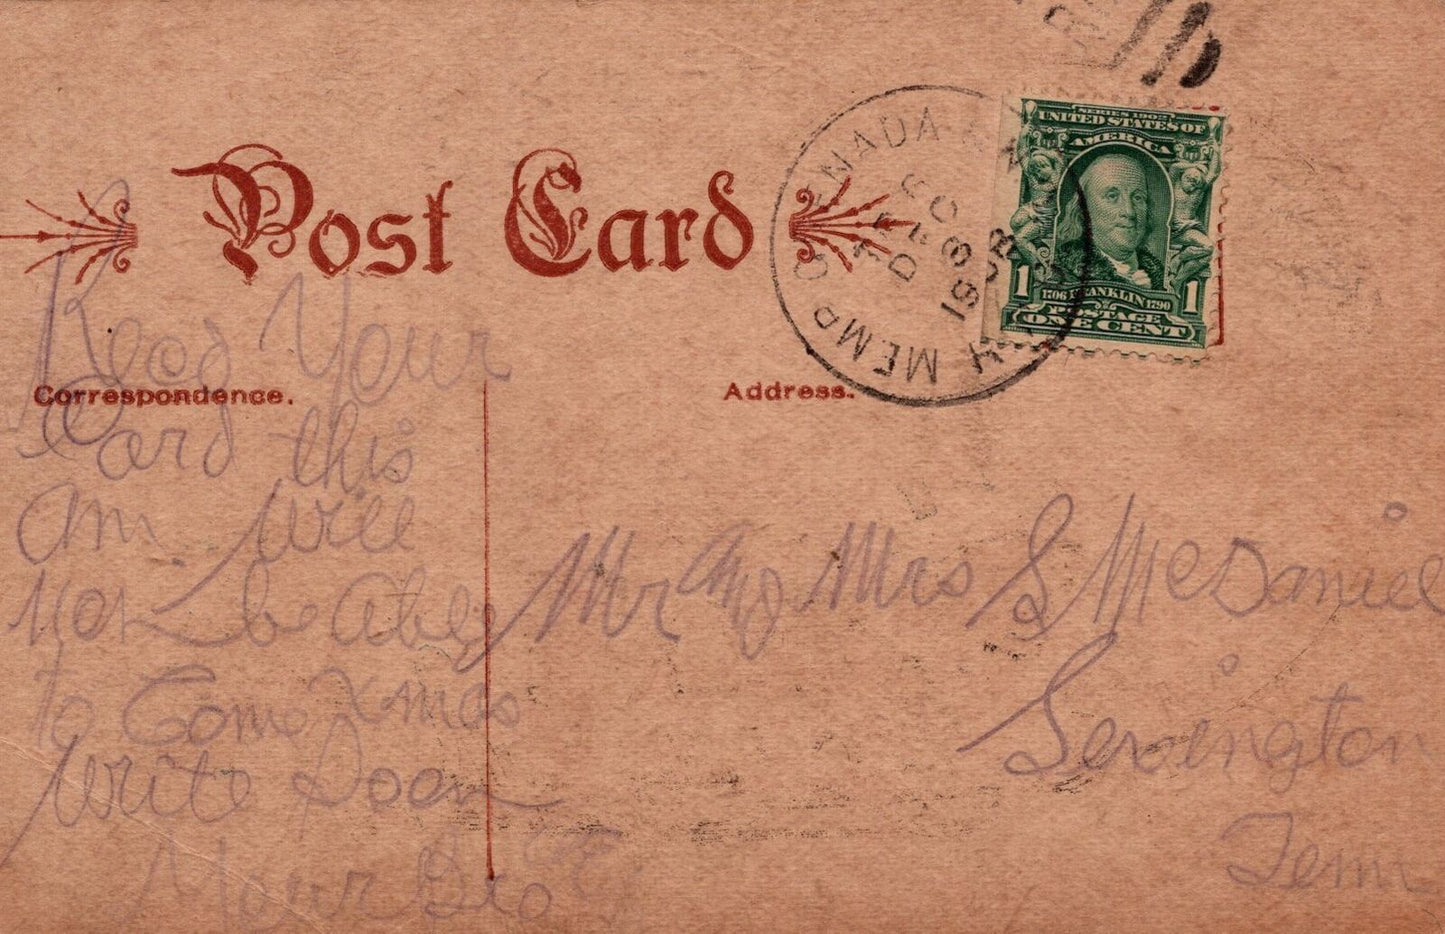 Post Card
SERIES 1902
UNITED STATES OF
AMERICA
1706 FRANKLIN 1790
POSTAGE
1 ONE CENT 1
GRENADA & MEMP
R.P.O.
DEC
18
1908
Correspondence.
Address.
Your
Card this
am. Will
not be Able
to Come Xmas
Write Soon
Your Bro
Mr and Mrs S McDaniel
Serington
Tenn